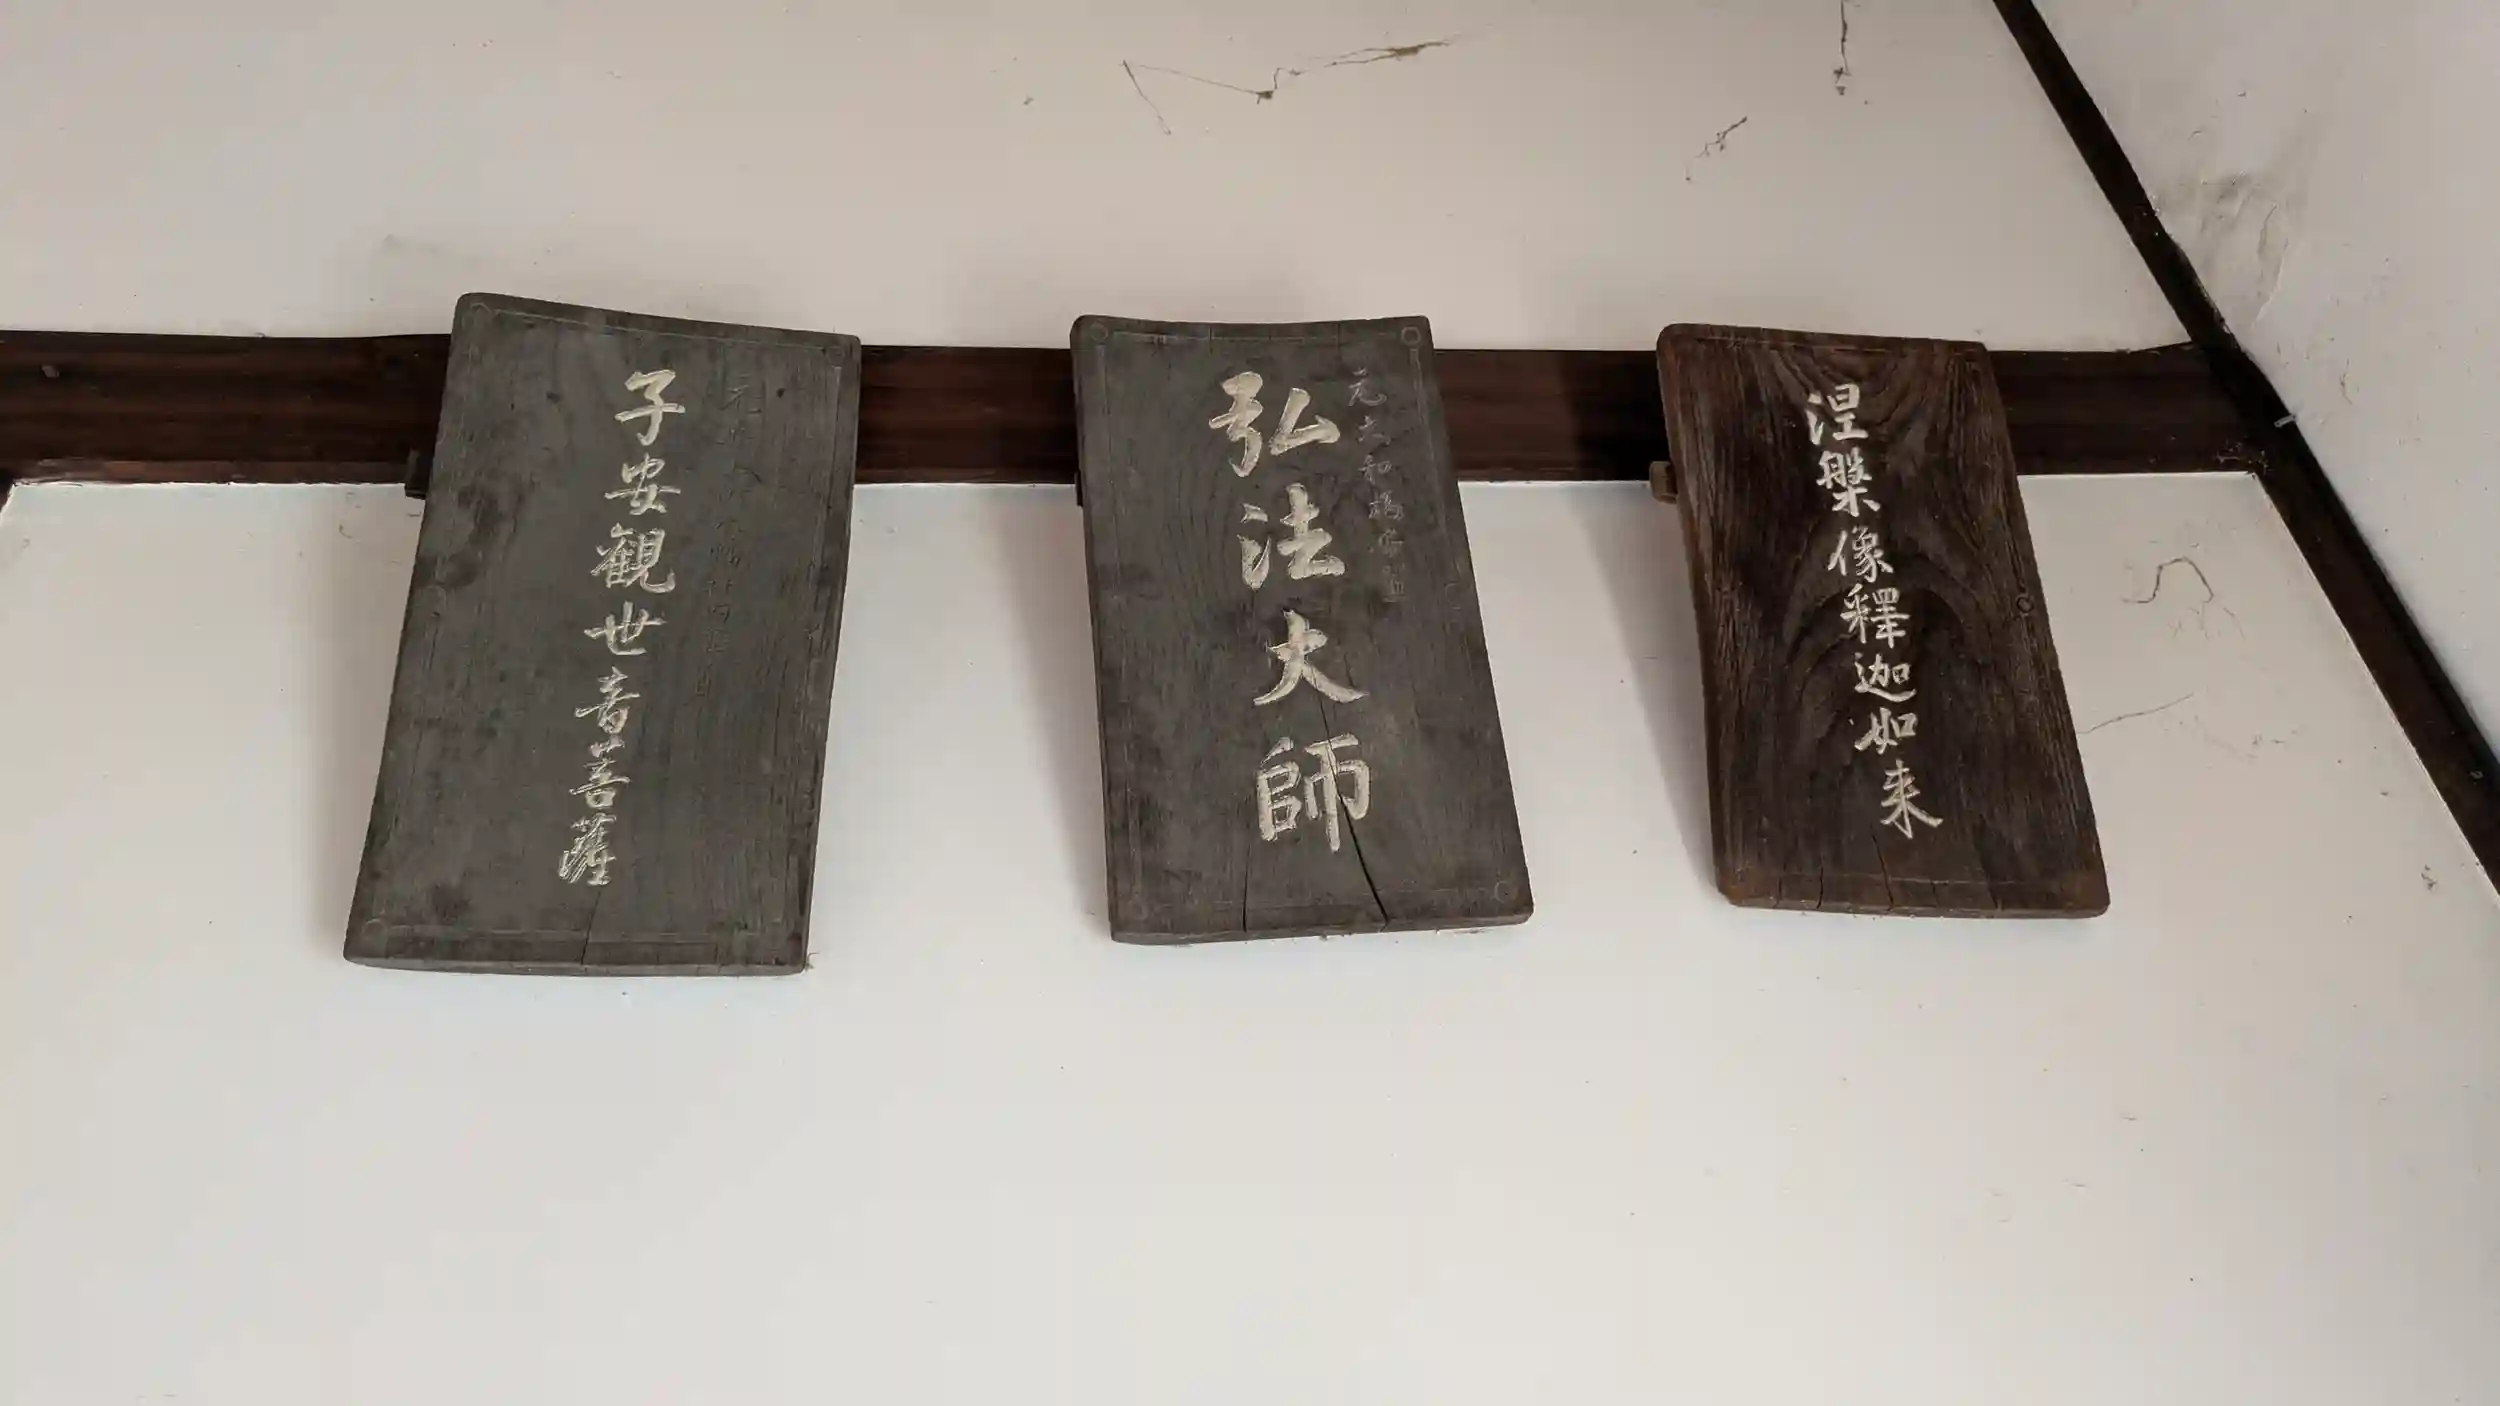 子安観世音菩薩
弘法大師
涅槃像釋迦如来